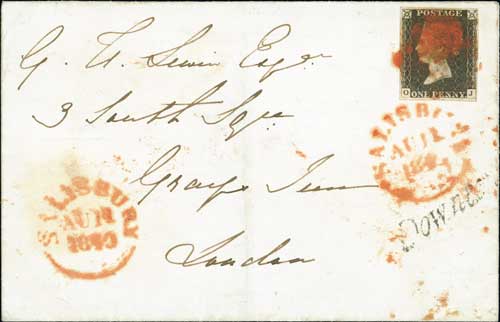 POSTAGE
O ONE PENNY. J
G. H. Lewin Esqr.
3 South Sqre
Grays Inn
London
SALISBURY
AU 12
1840
SALISBURY
AU 12
1840
Downton